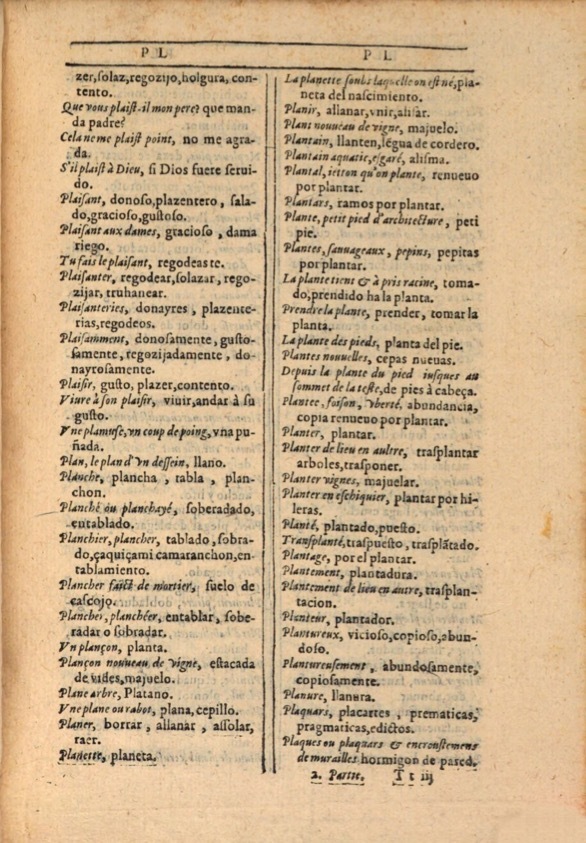 P L
zer,solaz,regozijo,holgura, con-
tento.
Que vous plaist-il mon pere? que man-
da padre?
Cela ne me plaist point, no me agra-
da.
S'il plaist à Dieu, si Dios fuere serui-
do.
Plaisant, donoso,plazentero, sala-
do,gracioso,gustoso.
Plaisant aux dames, gracioso , dama
riego.
Tu fais le plaisant, regodeaste.
Plaisanter, regodear,solazar, rego-
zijar, truhanear.
Plaisanteries, donayres , plazente-
rias,regodeos.
Plaisamment, donosamente, gusto-
samente, regozijadamente, do-
nayrosamente.
Plaisir, gusto, plazer,contento.
Viure à son plaisir, viuir,andar à su
gusto.
Vne plamuse,vn coup de poing, vna pu-
ñada.
Plan, le plan d'vn dessein, llano.
Planche, plancha , tabla , plan-
chon.
Planché ou planchayé, soberadado,
entablado.
Planchier, plancher, tablado, sobra-
do,çaquiçami camaranchon,en-
tablamiento.
Plancher faict de mortier, suelo de
cascojo.
Plancher, planchéer, entablar, sobe-
radar o sobradar.
Vn plançon, planta.
Plançon nouueau de vigne, estacada
de vides,majuelo.
Plane arbre, Platano.
Vne plane ou rabot, plana,cepillo.
Planer, borrar , allanar , assolar,
raer.
Planette, planeta.
P L
La planette soubs laquelle on est né,pla-
neta del nascimiento.
Planir, allanar,vnir,alisar.
Plant nouueau de vigne, majuelo.
Plantain, llanten,légua de cordero.
Plantain aquatic,esgaré, alisma.
Plantal, ietton qu'on plante, renueuo
por plantar.
Plantars, ramos por plantar.
Plante, petit pied d'architecture, peti
pie.
Plantes, sauuageaux, pepins, pepitas
por plantar.
La plante tient & à pris racine, toma-
do,prendido ha la planta.
Prendre la plante, prender, tomar la
planta.
La plante des pieds, planta del pie.
Plantes nouuelles, cepas nueuas.
Depuis la plante du pied iusques au
sommet de la teste,de pies à cabeça.
Plantee, foison, vberté, abundancia,
copia renueuo por plantar.
Planter, plantar.
Planter de lieu en aultre, trasplantar
arboles,trasponer.
Planter vignes, majuelar.
Planter en eschiquier, plantar por hi-
leras.
Planté, plantado,puesto.
Transplanté,traspuesto,trasplãtado.
Plantage, por el plantar.
Plantement, plantadura.
Plantement de lieu en autre, trasplan-
tacion.
Planteur, plantador.
Plantureux, vicioso,copioso,abun-
doso.
Plantureusement , abundosamente,
copiosamente.
Planure, llanura.
Plaquars, placartes , prematicas,
pragmaticas,edictos.
Plaques ou plaquars & encroustemens
de murailles hormigon de pared.
2. Partie. T t iij